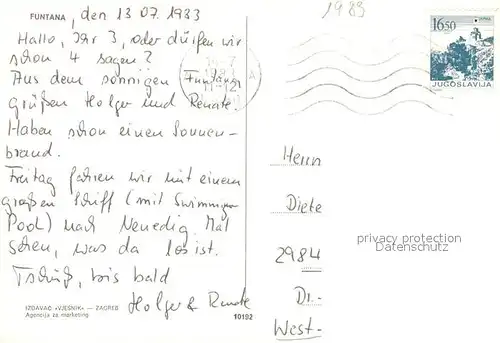 FUNTANA, den 13 07. 1983
Hallo, Ihr 3, oder dürfen wir
schon 4 sagen?
Aus dem sonnigen Funtana
grüßen Holger und Renate.
Haben schon einen Sonnen-
brand.
Freitag fahren wir mit einem
großen Schiff (mit Swimming
Pool) nach Venedig. Mal
sehen, was da los ist.
Tschüß, bis bald
Holger & Renate
IZDAVAČ »VJESNIK« — ZAGREB
Agencija za marketing
10192
1983
16.50
JUGOSLAVIJA
Herrn
Diete
2984
Dr.-
West-
privacy protection
Datenschutz